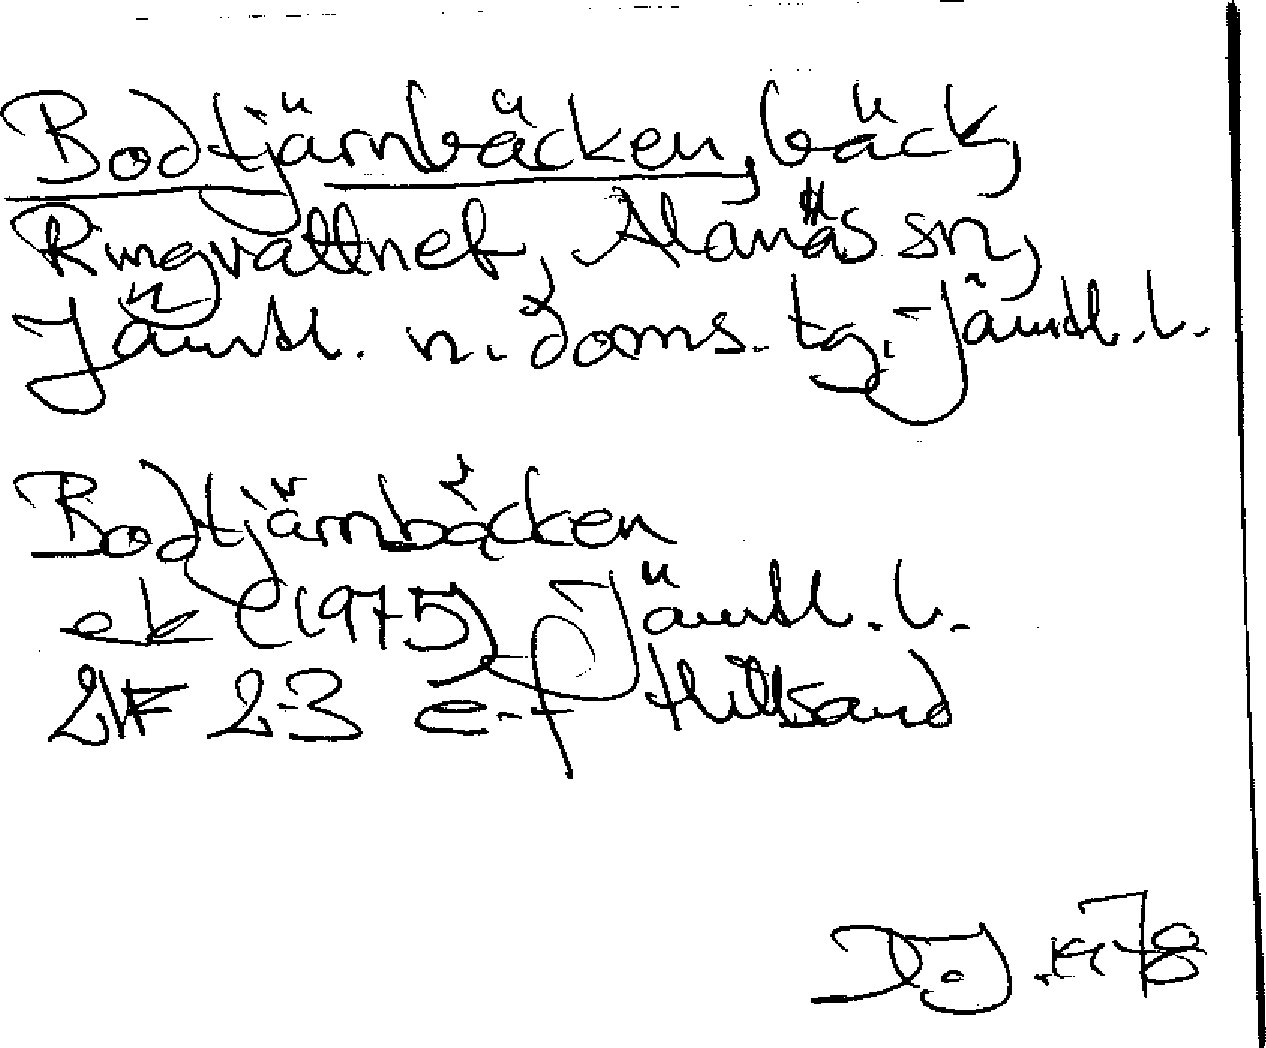 Bodtjärnbäcken, bäck,
Ringvattnet, Alanäs sn,
Jämtl. n. doms. tg. Jämtl. l.
Bodtjärnbäcken
ek (1975) Jämtl. l.
21F 23 e-f Hillsand
78